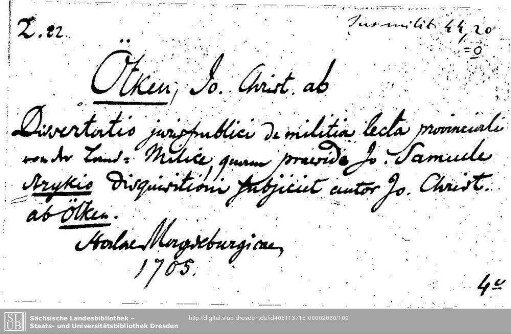 Z. 22
Jus milit 44, 20
= 0
Ötken, Jo. Christ. ab
Dissertatio juris publici de militia lecta provinciali
von der Land-Milice, quam praeside Jo. Samuele
Strykio disquisitioni subjiciet autor Jo. Christ.
ab Ötken.
Halae Magdeburgicae,
1705.
4°
Sächsische Landesbibliothek –
Staats- und Universitätsbibliothek Dresden